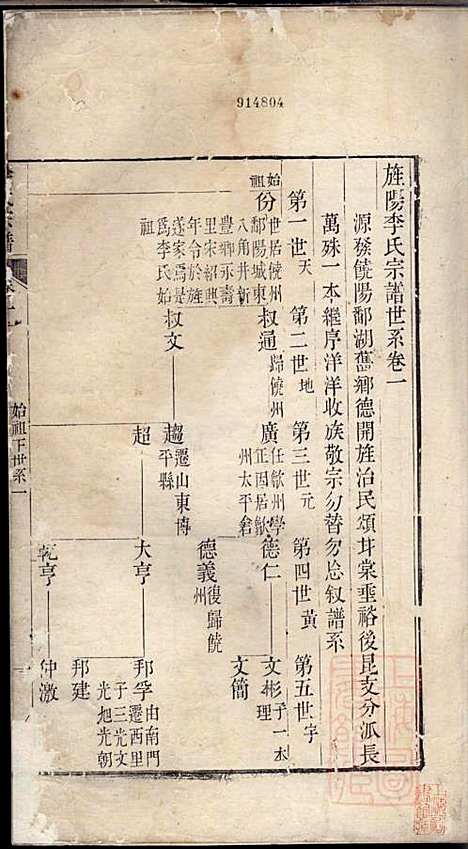 914804
旌陽李氏宗譜世系卷一
源發饒陽鄱湖舊鄉德開旌治民頌甘棠垂裕後昆支分派長
萬殊一本繼序洋洋收族敬宗勿替勿忘叙譜系
第一世天 第二世地 第三世元 第四世黃 第五世宇
始祖
份 世居饒州
鄱陽城東
八角井新
豐鄉永壽
里宋紹興
年令於旌
遂家焉是
爲李氏始
祖
叔通 歸饒州
廣 任歙州學
正因居歙
州太平倉
德仁
文彬 子一本
理
文簡
德義 復歸饒
州
叔文
趨 遷山東博
平縣
超
大亨
邦孚 由南門
遷西里
子三光文
光旭光朝
邦建
乾亨
仲激
始祖下世系一